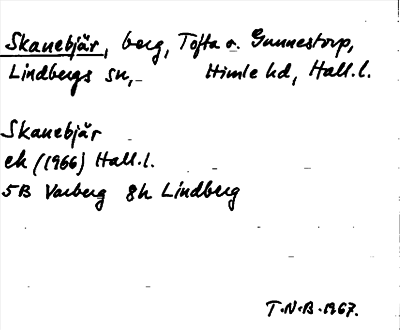 Skanebjär, berg, Tofta o. Gunnestorp,
Lindbergs sn, Himle hd, Hall.l.
Skanebjär
ek (1966) Hall.l.
5B Varberg 8h Lindberg
T.N.B. 1967.